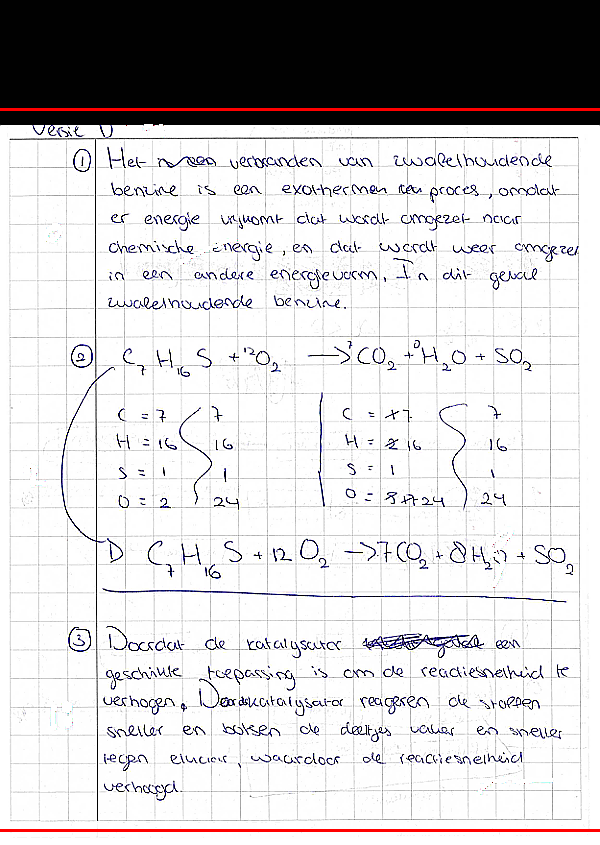 Versie D
① Het verbranden van zwavelhoudende
benzine is een exothermen proces, omdat
er energie vrijkomt dat wordt omgezet naar
chemische energie, en dat wordt weer omgezet
in een andere energievorm. In dit geval
zwavelhoudende benzine.
② C₇H₁₆S + 12O₂ → 7CO₂ + 8H₂O + SO₂
C = 7 7 C = 7 7
H = 16 16 H = 16 16
S = 1 1 S = 1 1
O = 2 24 O = 24 24
D C₇H₁₆S + 12 O₂ → 7CO₂ + 8H₂O + SO₂
③ Doordat de katalysator een
geschikte toepassing is om de reactiesnelheid te
verhogen. Door katalysator reageren de stoffen
sneller en botsen de deeltjes vaker en sneller
tegen elkaar, waardoor de reactiesnelheid
verhoogd.